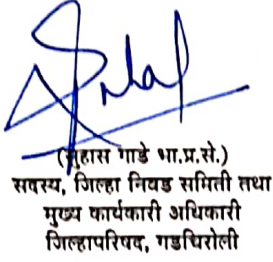 (सुहास गाडे भा.प्र.से.)
सदस्य, जिल्हा निवड समिती तथा
मुख्य कार्यकारी अधिकारी
जिल्हापरिषद, गडचिरोली